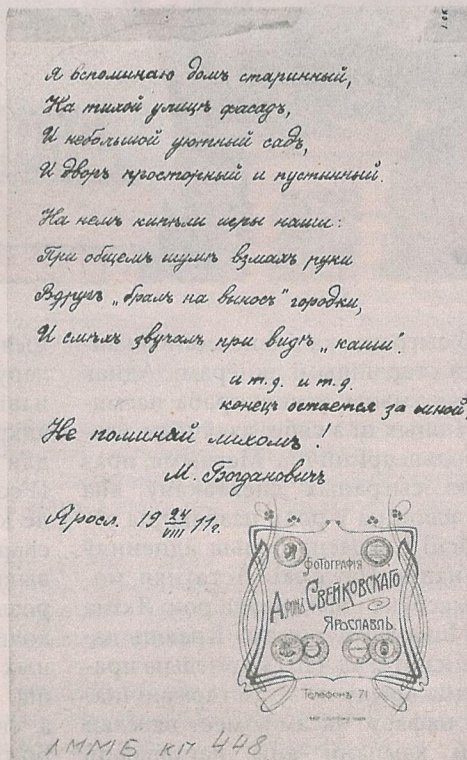 Я вспоминаю домъ старинный,
На тихой улицѣ фасадъ,
И небольшой уютный садъ,
И дворъ просторный и пустынный.
На немъ кипѣли игры наши:
При общемъ шумѣ взмахъ руки
Вдругъ „бралъ на выносъ“ городки,
И смѣхъ звучалъ при видѣ „каши“.
и т.д. и т.д.
конецъ остается за мной,
Не поминай лихомъ!
М. Богдановичъ
Яросл. 19 24/VIII 11 г.
Фотографія
Свейковскаго
Ярославль.
Телефонъ 71
ЛММБ КП 448